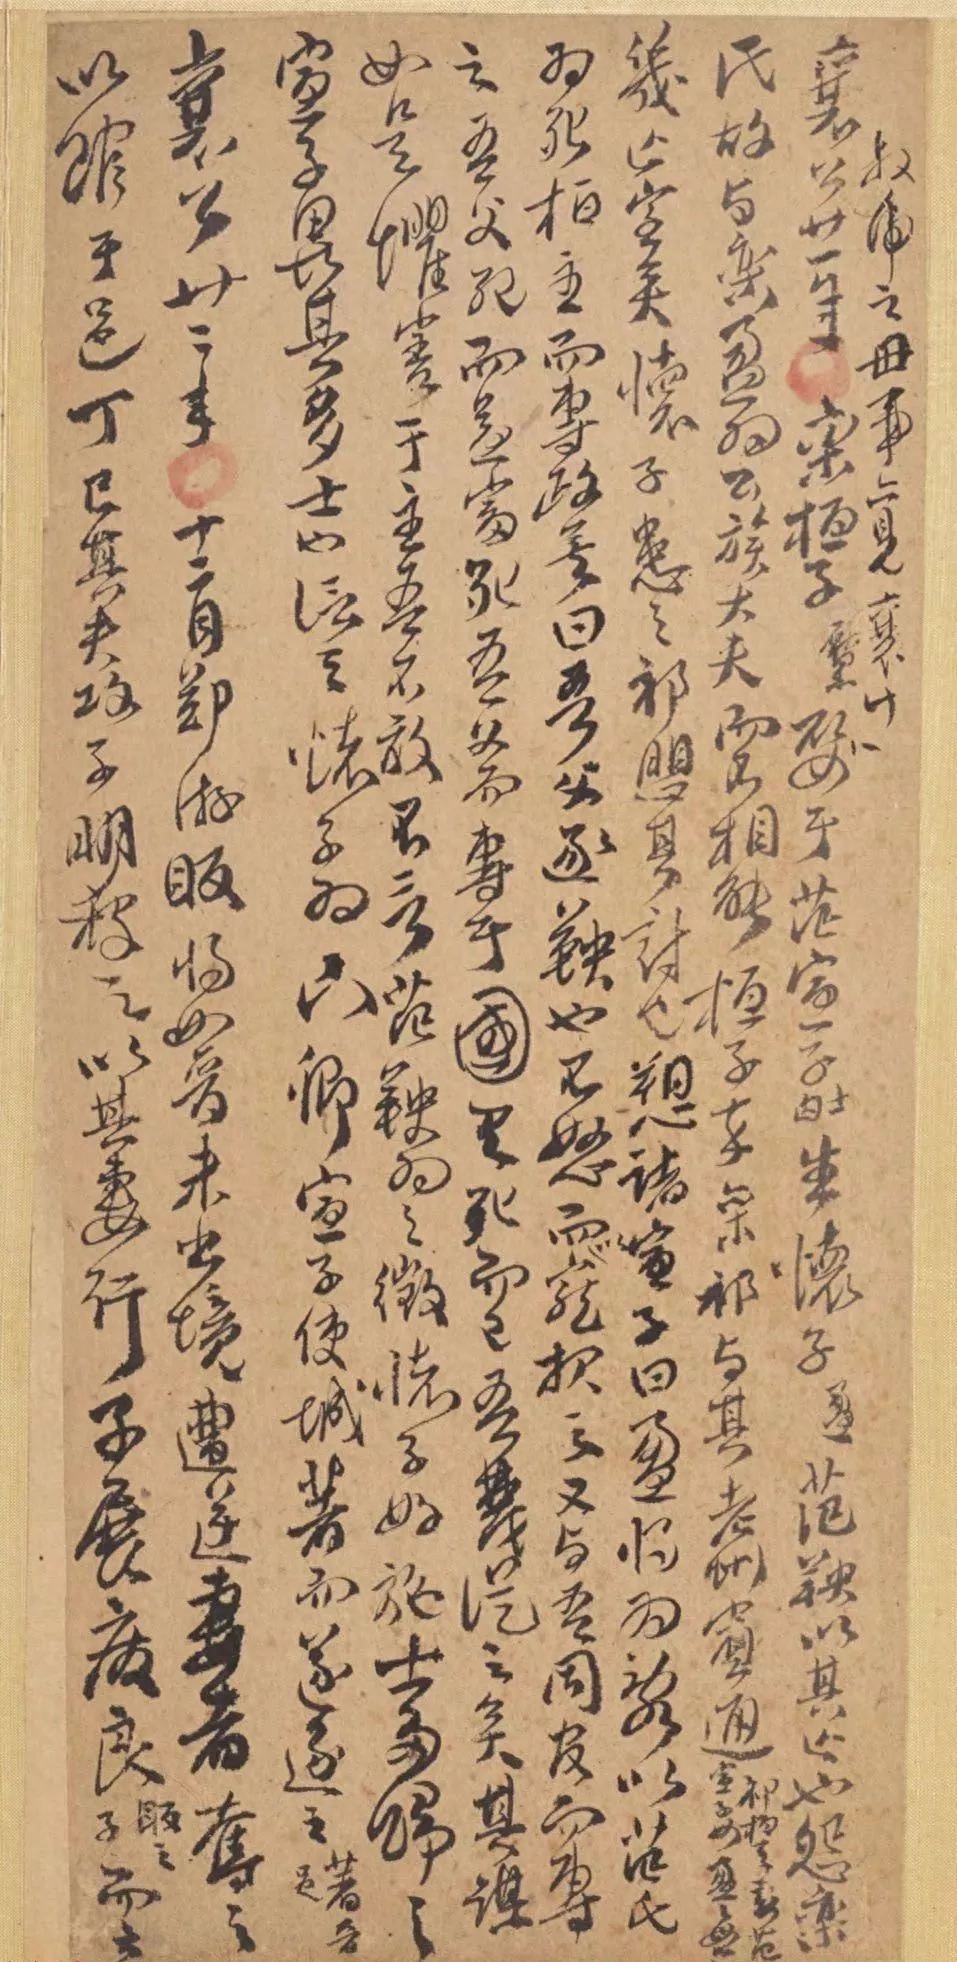 叔虎之母事亦見襄廿
襄公廿一年欒桓子黶娶于范宣子匄生懷子盈范鞅以其亡也怨欒
氏故与欒盈為公族大夫而不相能桓子卒欒祁与其老州賓通祁桓子妻范宣子女盈母
幾亡室矣懷子患之祁懼其討也愬諸宣子曰盈將為亂以范氏
為死桓主而專政矣曰吾父逐鞅也不怒而寵报之又与吾同官而專
之吾父死而益富死吾父而專于國有死而已吾蔑從之矣其謀
如是懼害于主吾不敢不言范鞅為之徵懷子好施士多歸之
宣子畏其多士也信之懷子為下卿宣子使城著而遂逐之著晉邑
襄公廿二年十二月鄭游眅將如晉未出境遭逆妻者奪之
以館于邑丁巳其夫攻子明殺之以其妻行子展廢良眅之子而立